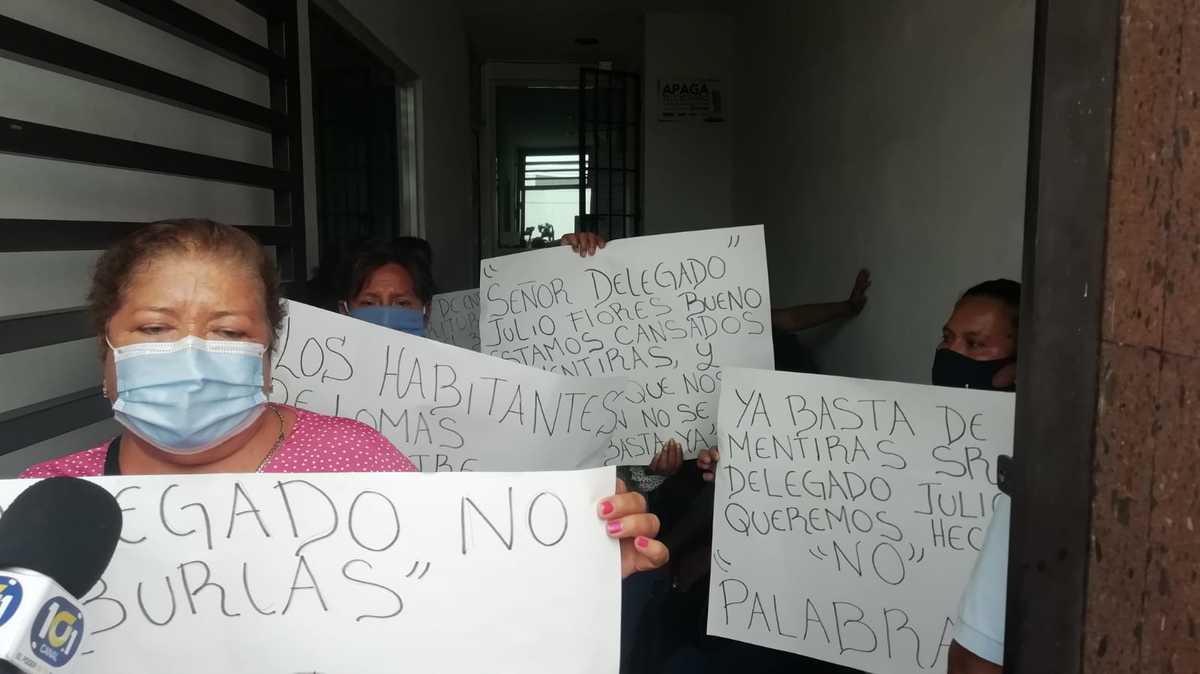 APAGA
"SEÑOR DELEGADO"
JULIO FLORES BUENO
ESTAMOS CANSADOS
MENTIRAS, Y
QUE NOS
NO SE
BASTA YA
LOS HABITANTES
DE LOMAS
YA BASTA DE
MENTIRAS SR.
DELEGADO JULIO
QUEREMOS HEC
"NO"
PALABRA
EGADO NO
BURLAS"
101
CANAL